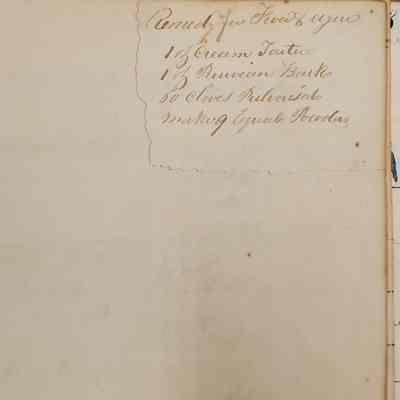 Remedy for Fever & ague
1 oz Cream Tarter
1 oz Peruvian Bark
60 Cloves Pulverised
make 9 Equal Powders